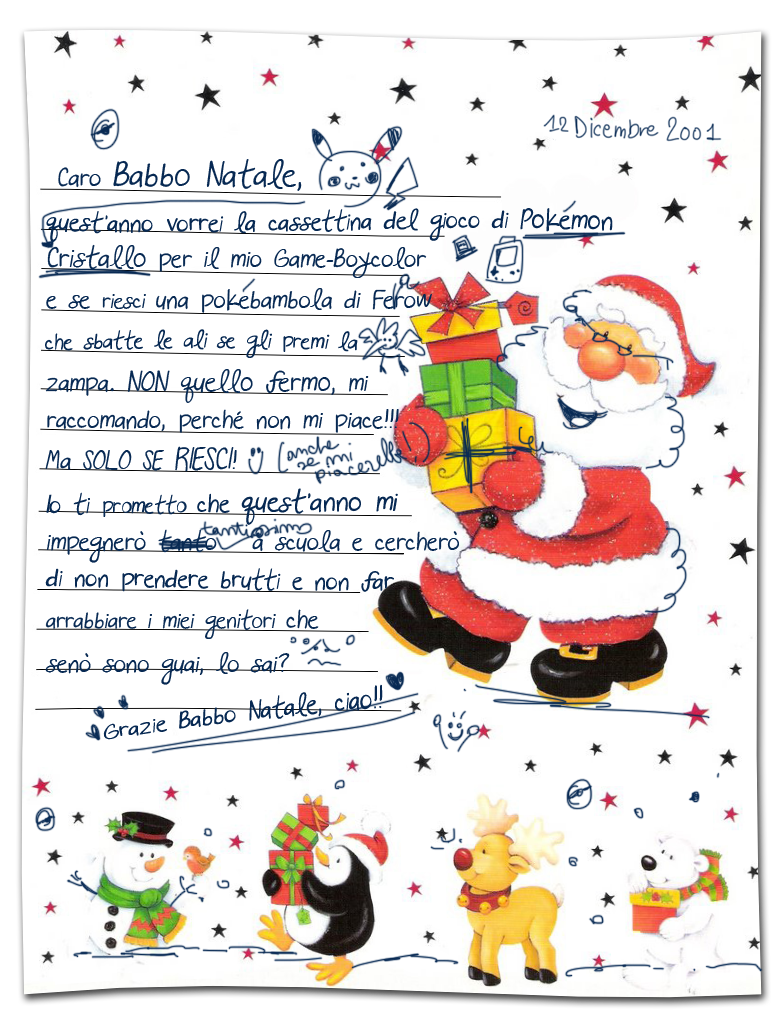 12 Dicembre 2001
Caro Babbo Natale,
quest'anno vorrei la cassettina del gioco di Pokémon
Cristallo per il mio Game-Boycolor
e se riesci una pokébambola di Ferow
che sbatte le ali se gli premi la
zampa. NON quello fermo, mi
raccomando, perché non mi piace!!!
Ma SOLO SE RIESCI! (anche se mi piacerebbe)
Io ti prometto che quest'anno mi
impegnerò tanto tantissimo a scuola e cercherò
di non prendere brutti e non far
arrabbiare i miei genitori che
senò sono guai, lo sai?
Grazie Babbo Natale, ciao!!